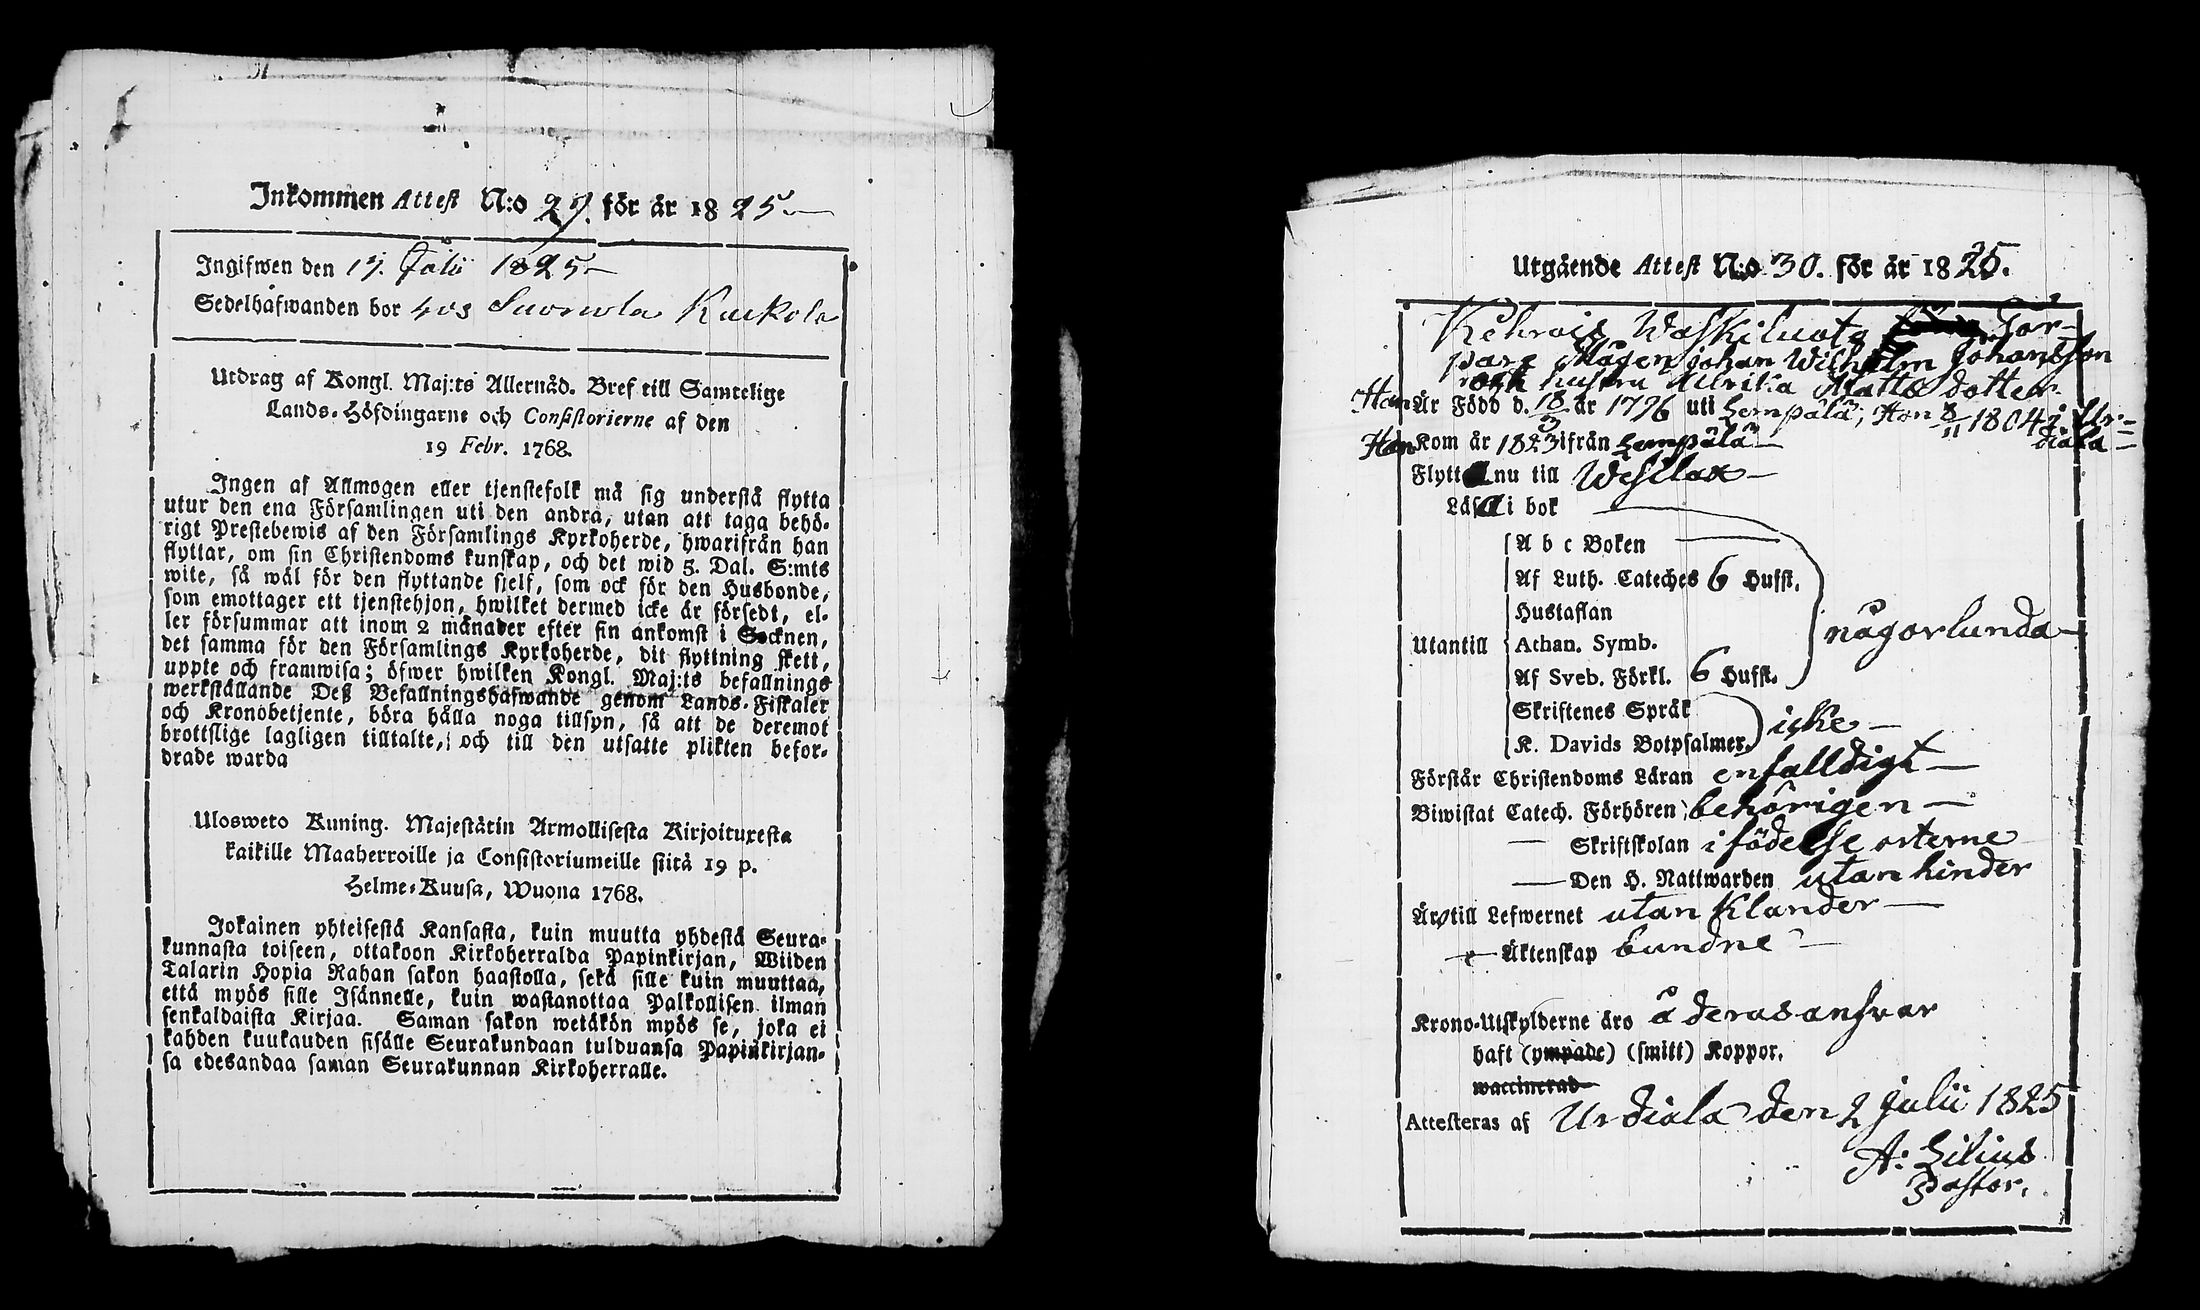 Inkommen Attest N:o 27. för år 1825.
Ingifwen den 17. Julii 1825
Sedelhafwanden bor hos Suonola Kuckola
Utdrag af Kongl. Maj:ts Allernåd. Bref till Samtelige
Lands-Höfdingarne och Consistorierne af den
19 Febr. 1768.
Ingen af Allmogen eller tjenstefolk må sig understå flytta
utur den ena Församlingen uti den andra, utan att taga behö-
rigt Prestebewis af den Församlings Kyrkoherde, hwarifrån han
flyttar, om sin Christendoms kunskap, och det wid 5. Dal. S:mts
wite, så wäl för den flyttande sjelf, som ock för den Husbonde,
som emottager ett tjenstehjon, hwilket dermed icke är försedt, el-
ler försummar att inom 2 månader efter sin ankomst i Socknen,
det samma för den Församlings Kyrkoherde, dit flyttning skett,
uppte och framwisa; öfwer hwilken Kongl. Maj:ts befallnings
werkställande Deß Befallningshafwande genom Lands-Fiskaler
och Kronobetjente, böra hålla noga tillsyn, så att de deremot
brottslige lagligen tilltalte, och till den utsatte plikten befor-
drade warda
Ulosweto Kuning. Majestätin Armollisesta Kirjoituxesta
kaikille Maaherroille ja Consistoriumeille siitä 19 p.
Helme-Kuusa, Wuona 1768.
Jokainen yhteisestä Kansasta, kuin muutta yhdestä Seura-
kunnasta toiseen, ottakoon Kirkoherralda Papinkirjan, Wiiden
Talarin Hopia Rahan sakon haastolla, sekä sille kuin muuttaa,
että myös sille Isännelle, kuin wastanottaa Palkollisen ilman
senkaldaista Kirjaa. Saman sakon wetäkön myös se, joka ei
kahden kuukauden sisälle Seurakundaan tulduansa Papinkirjan-
sa edesandaa saman Seurakunnan Kirkoherralle.
Utgående Attest N:o 30. för år 1825.
Kehrois Waskiluoto Tor-
pare Mågen Johan Wilhelm Johansson
och hustru Ulrika Matts dotter
Han Är Född d. 18/3 år 1796 uti Lempälä, Hon 8/11 1804 i Ur-
diala
Han Kom år 1823 ifrån Lempälä
Flytta nu till Wesilax
Läsa i bok
A b c Boken
Af Luth. Cateches 6 Hufst.
Hustaflan
någorlunda
Utantill Athan. Symb.
Af Sveb. Förkl. 6 Hufst.
Skriftenes Språk
icke
K. Davids Botpsalmer
Förstår Christendoms Läran enfalldigt
Biwistat Catech. Förhören behörigen
Skriftskolan i födelse orterne
Den H. Nattwarden utan hinder
Äro till Lefwernet utan klander
Äktenskap bundne
Krono-Utskylderne äro å deras answar
haft (ympade) (smitt) Koppor.
waccinerad
Attesteras af Urdiala den 2 Julii 1825
A: Lilius
Pastor.